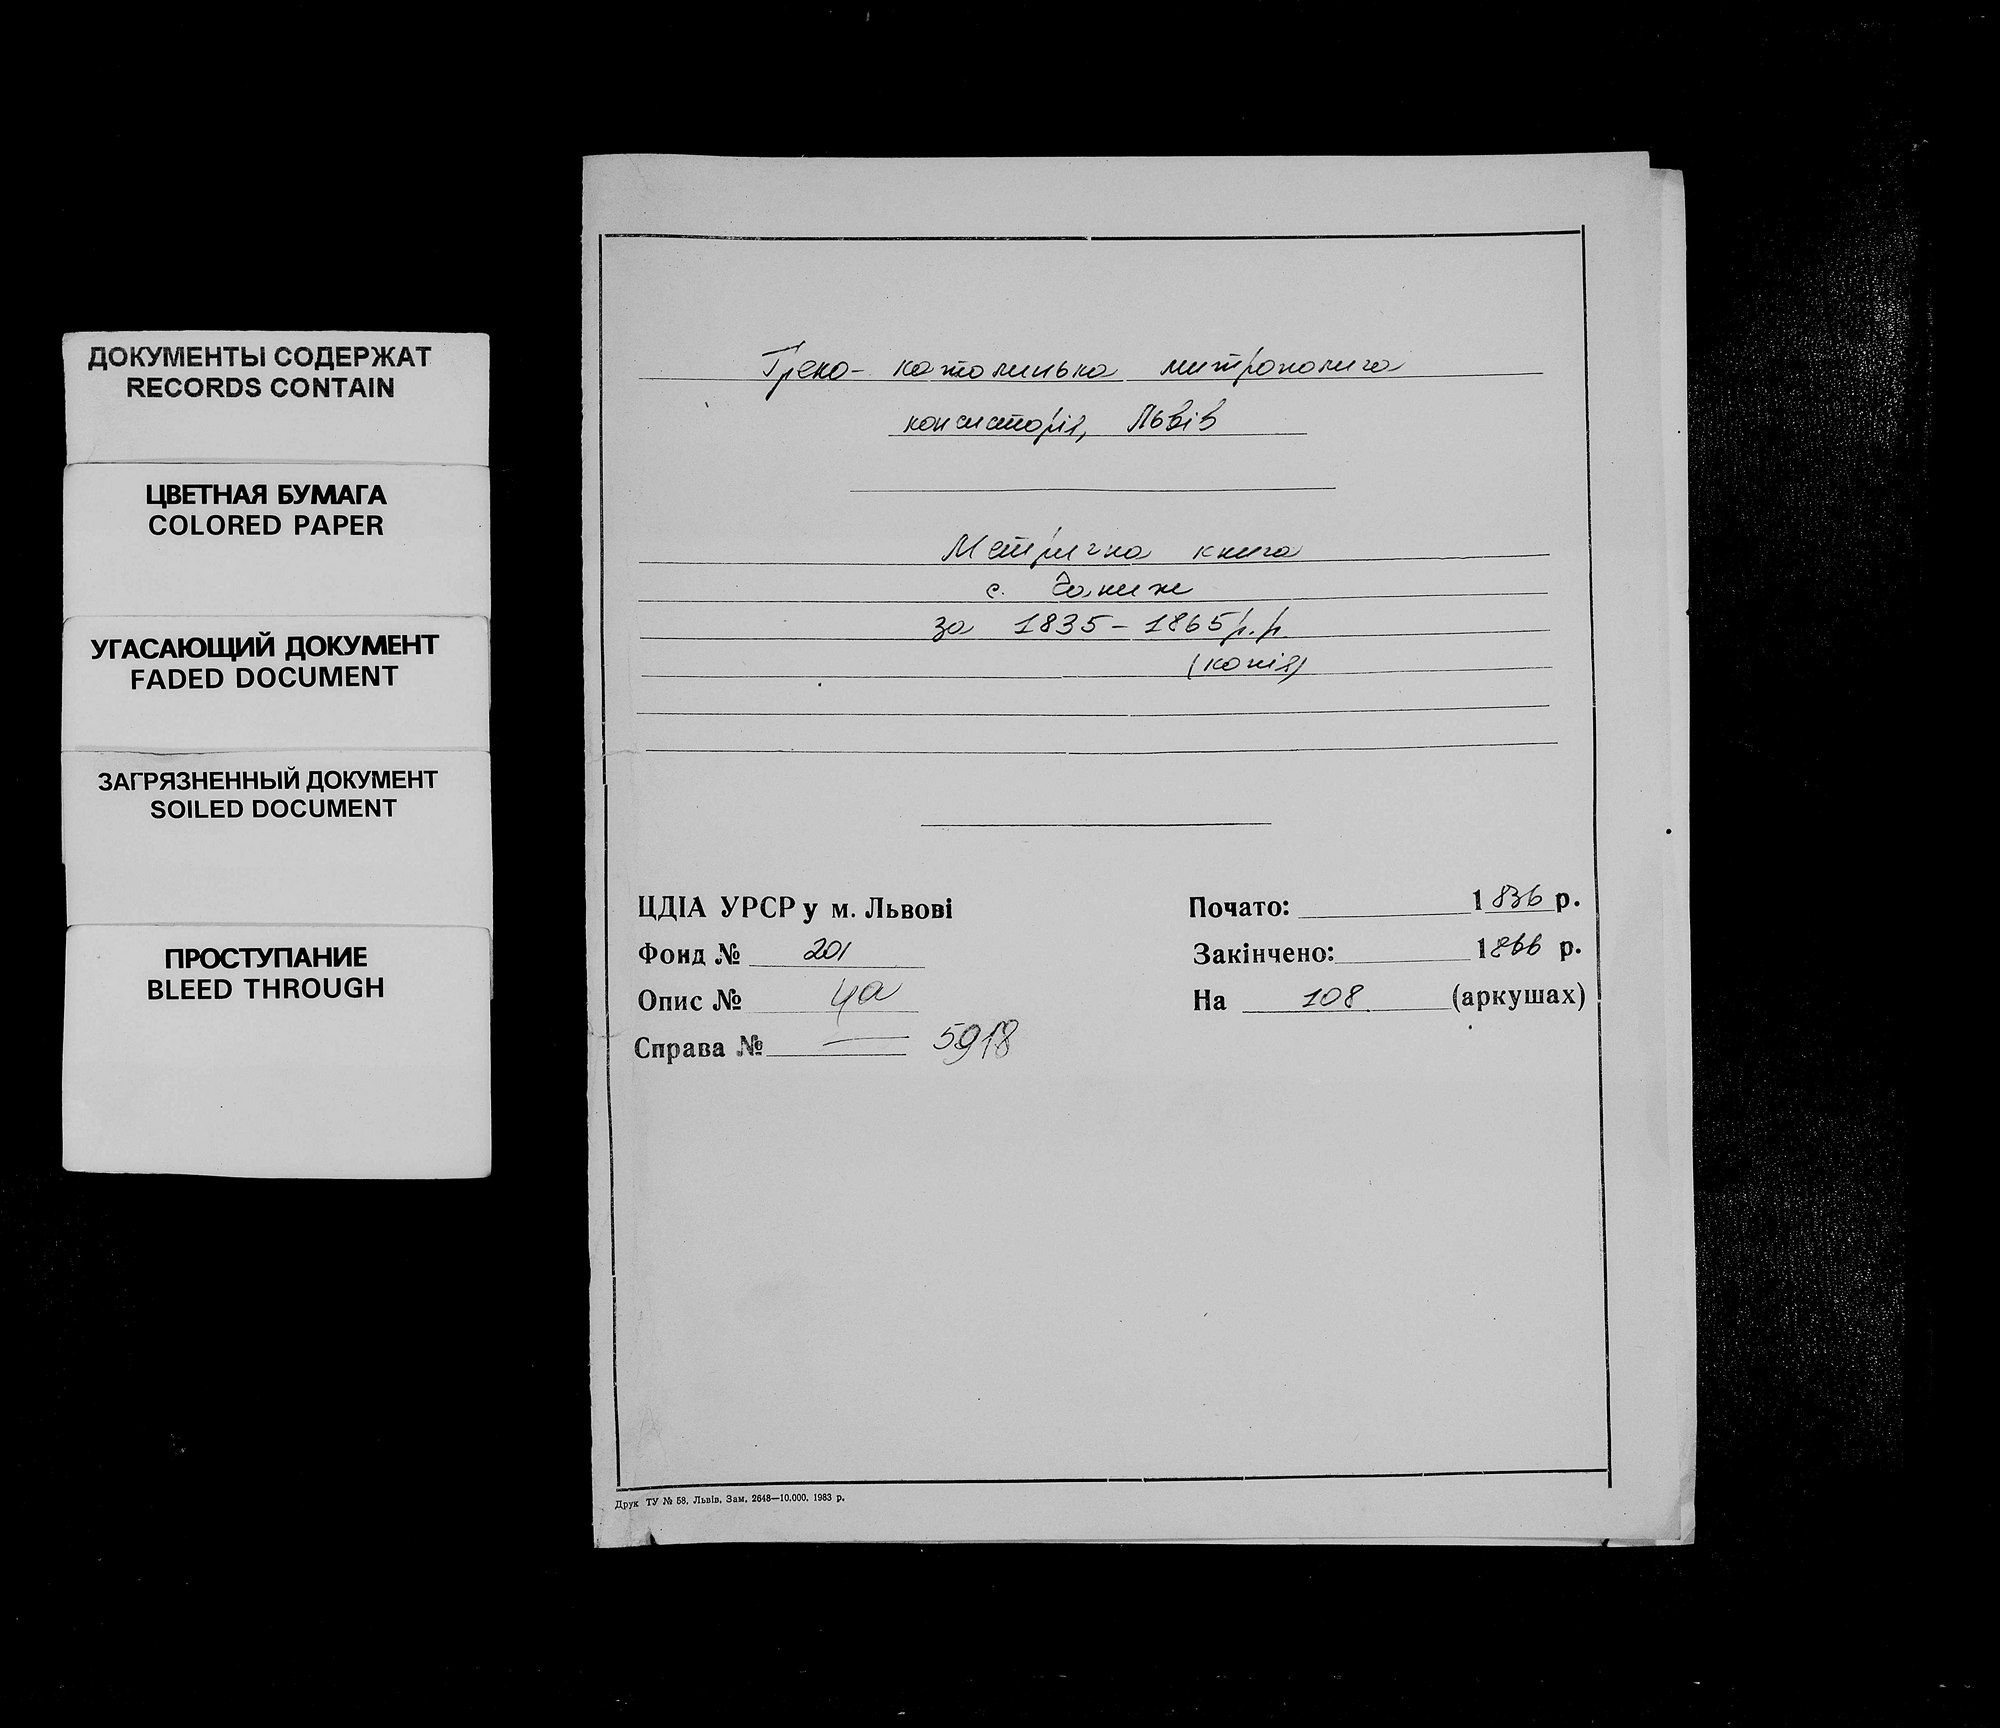 ДОКУМЕНТЫ СОДЕРЖАТ
RECORDS CONTAIN
ЦВЕТНАЯ БУМАГА
COLORED PAPER
УГАСАЮЩИЙ ДОКУМЕНТ
FADED DOCUMENT
ЗАГРЯЗНЕННЫЙ ДОКУМЕНТ
SOILED DOCUMENT
ПРОСТУПАНИЕ
BLEED THROUGH
Греко-католицька митрополича
консисторія, Львів
Метрична книга
с. Чаниж
за 1835-1865 р.р.
(копія)
ЦДІА УРСР у м. Львові
Фонд № 201
Опис № 4а
Справа № 5918
Почато: 1836 р.
Закінчено: 1866 р.
На 108 (аркушах)
Друк ТУ № 58, Львів, Зам. 2648—10.000. 1983 р.